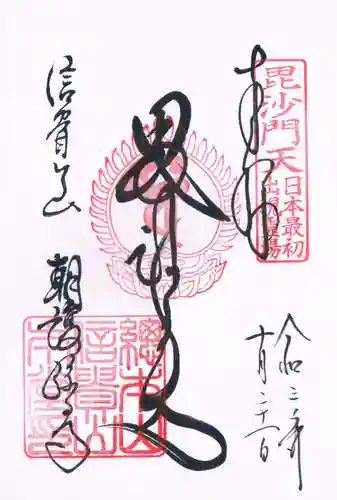 奉拝
毘沙門天
日本最初
出現霊場
令和三年
十月二十一日
毘沙門天
信貴山
朝護孫子寺
総本山
信貴山